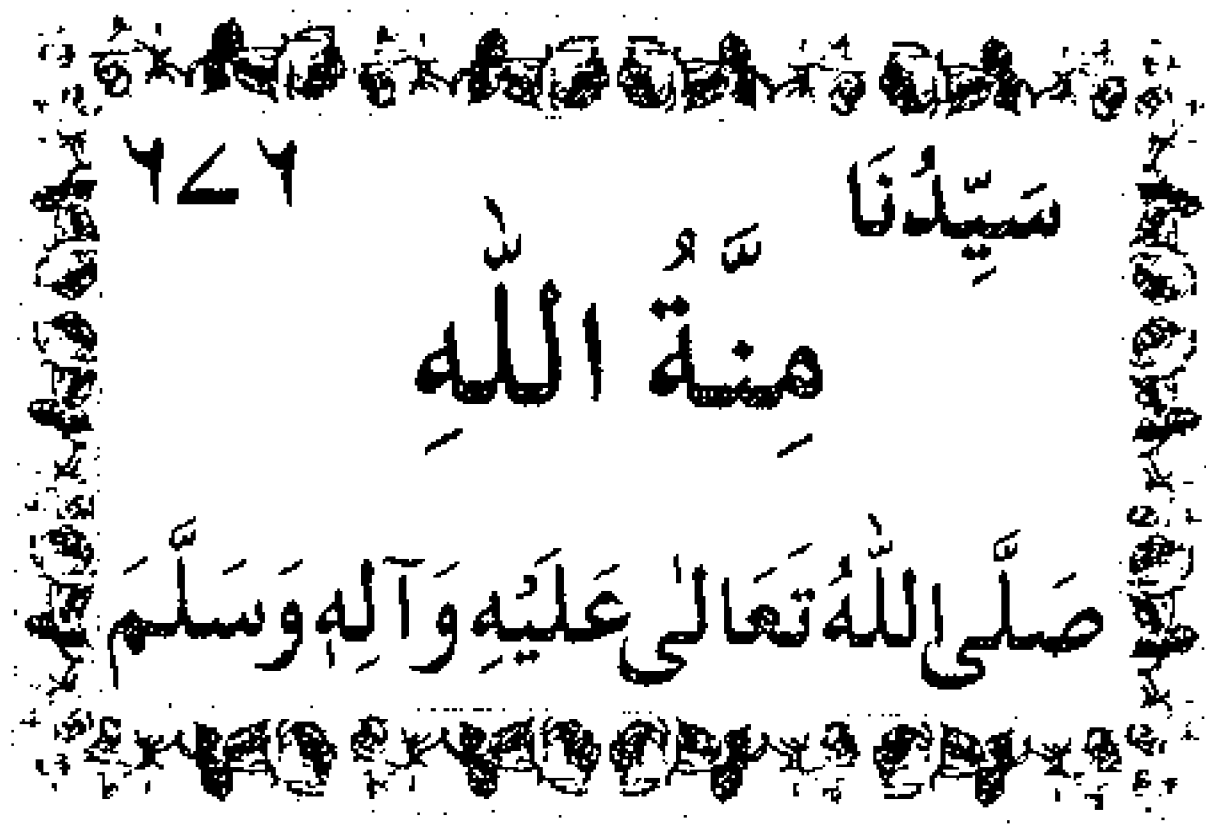 سَيِّدُنَا ٦٧٦
مِنَّةُ اللّٰهِ
صَلَّى اللّٰهُ تَعَالٰى عَلَيْهِ وَآلِهٖ وَسَلَّمَ